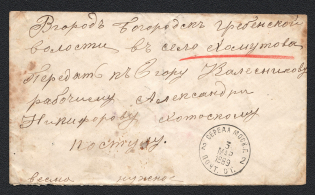 Вгородъ Богородскъ Гребенской
волости въ село Хомутова
Передать къ Егору Калесникову
рабочему Александри
Никифорову Хотоскому
поступу.
весма нужное
3
1889
ПОЧТ. ОТ.